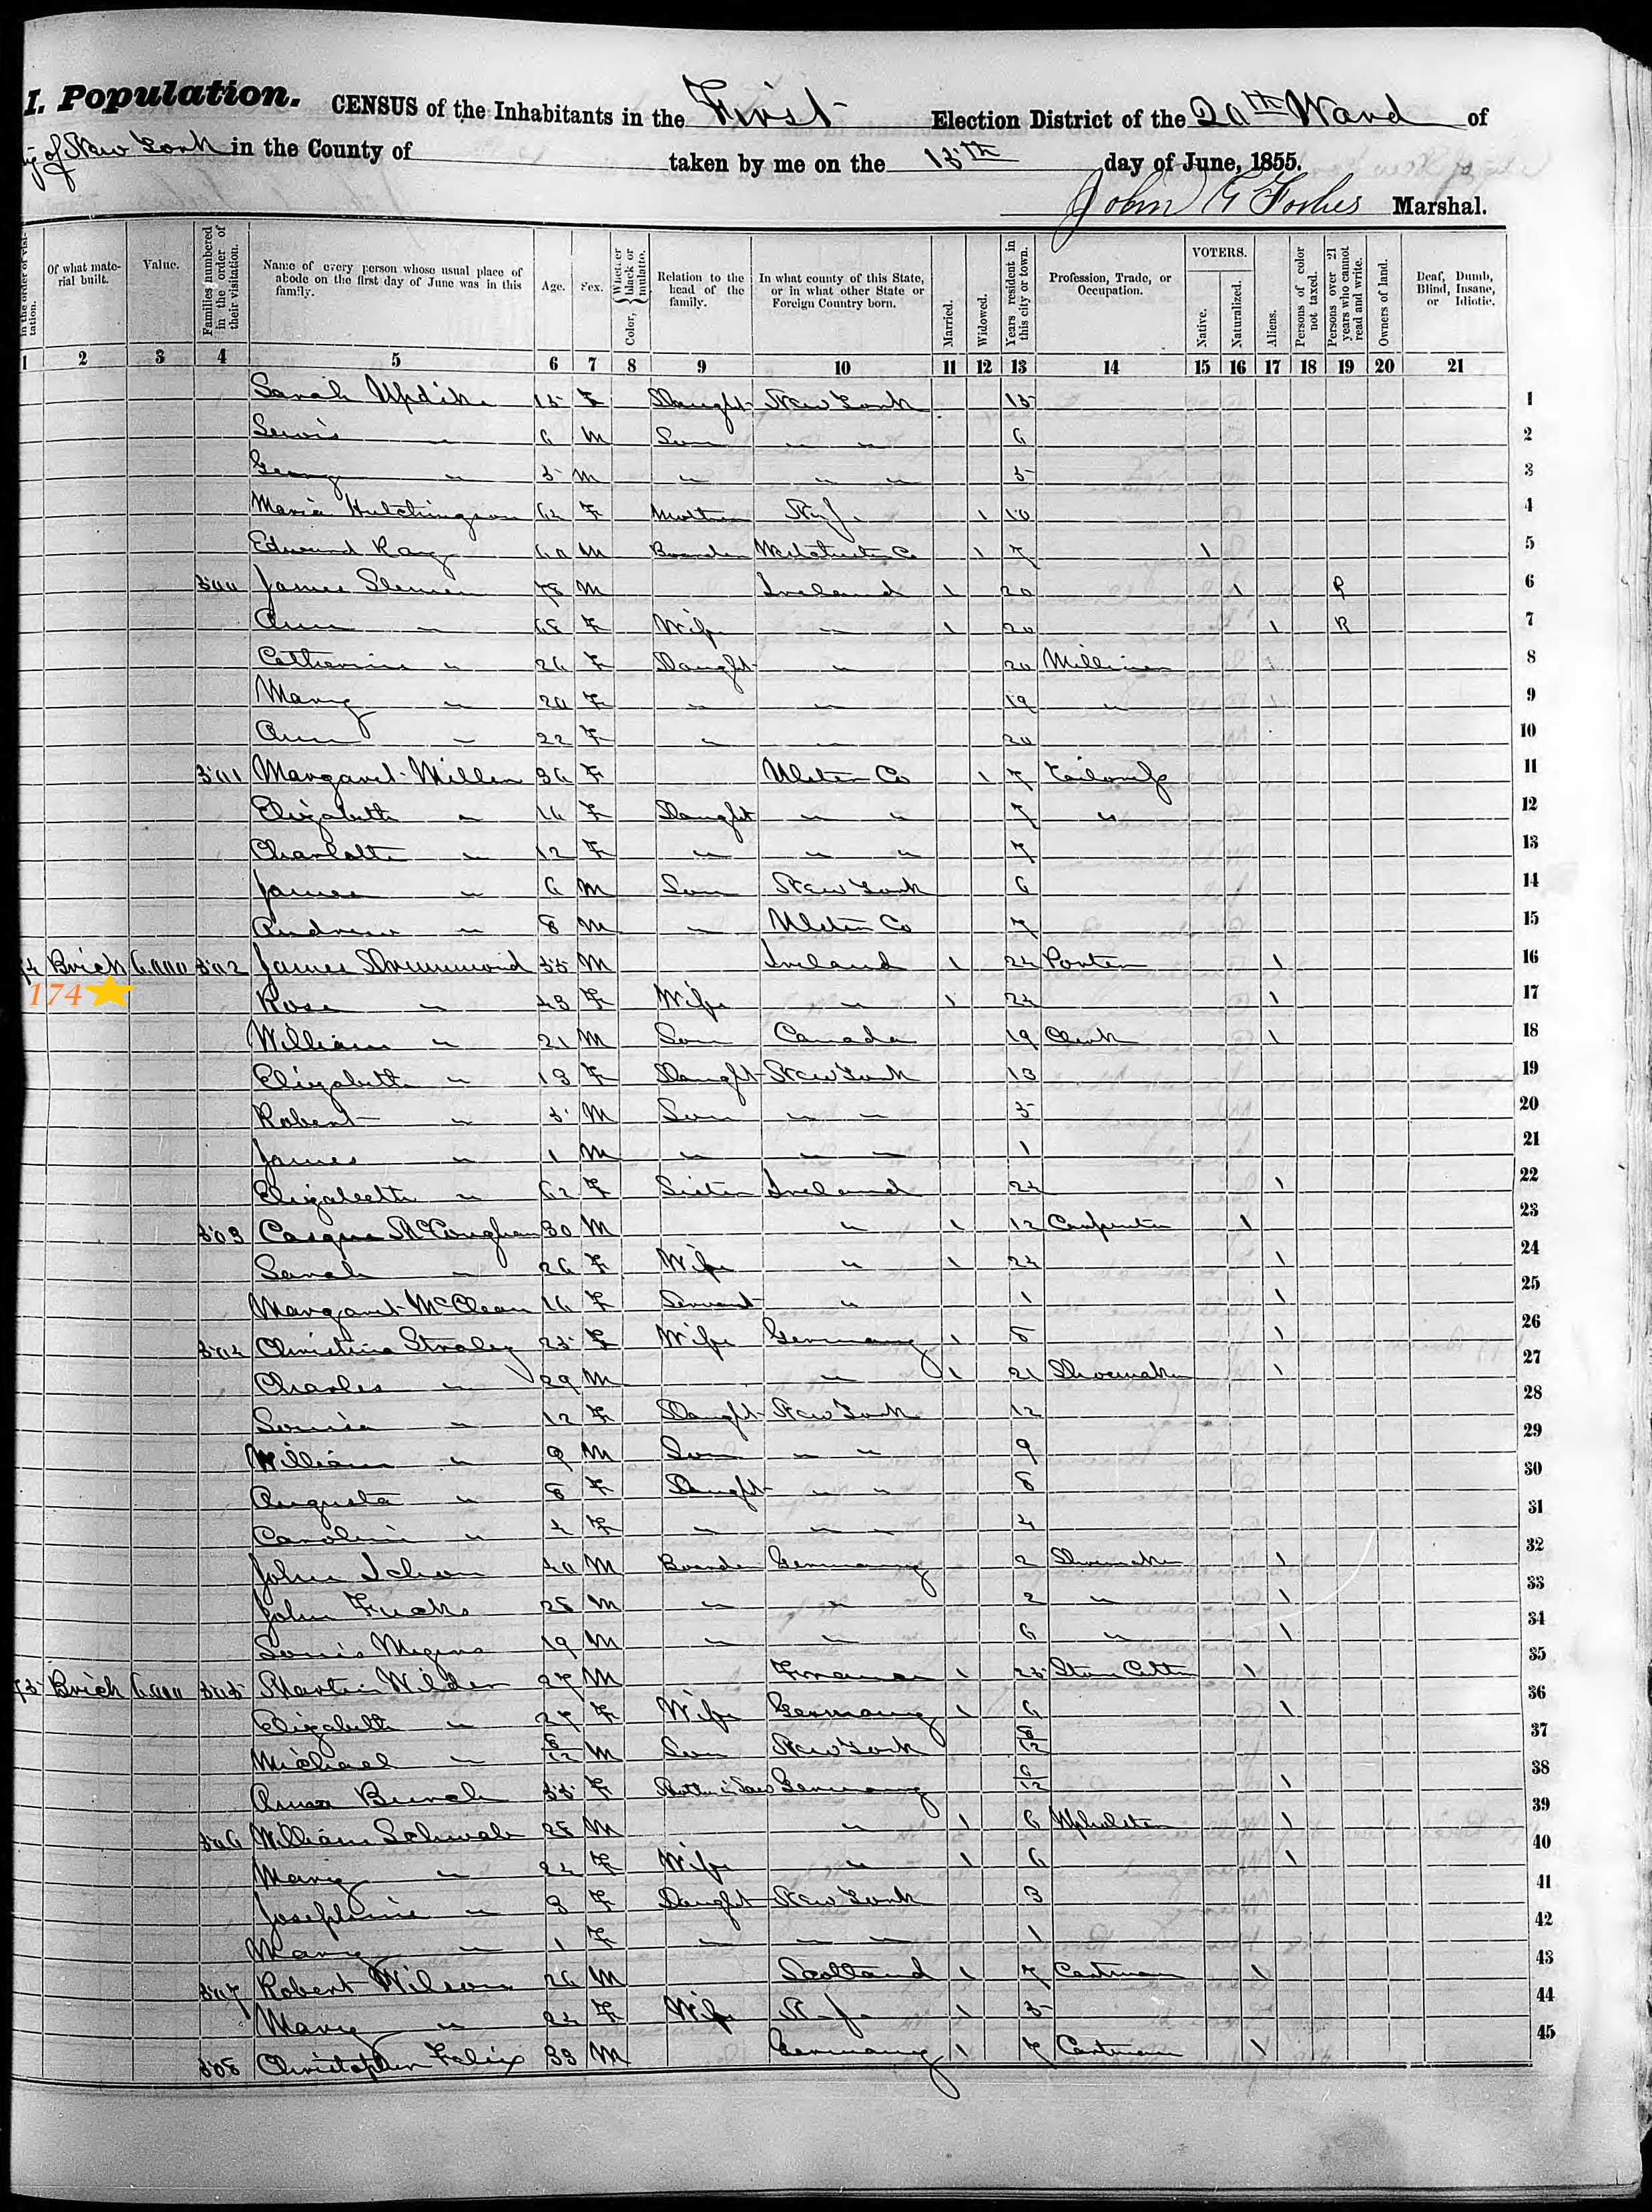 I. Population. CENSUS of the Inhabitants in the First Election District of the 20th Ward of
City of New York in the County of taken by me on the 15th day of June, 1855.
John Forbes Marshal.
in the order of visitation.
Of what material built.
Value.
Families numbered in the order of their visitation.
Name of every person whose usual place of abode on the first day of June was in this family.
Age.
Sex.
Color, Whether black or mulatto.
Relation to the head of the family.
In what county of this State, or in what other State or Foreign Country born.
Married.
Widowed.
Years resident in this city or town.
Profession, Trade, or Occupation.
VOTERS.
Native.
Naturalized.
Aliens.
Persons of color not taxed.
Persons over 21 years who cannot read and write.
Owners of land.
Deaf, Dumb, Blind, Insane, or Idiotic.
1 2 3 4 5 6 7 8 9 10 11 12 13 14 15 16 17 18 19 20 21
Sarah Updike 15 F Daught New York 15 1
Lewis " 6 M Son " " 6 2
George " 5 M " " " 5 3
Maria Hutchingson 62 F Mother N.J. 1 10 4
Edward Ray 60 M Boarder Westchester Co 1 7 1 5
500 James 78 M Ireland 1 20 1 R 6
Ann " 68 F Wife " 1 20 1 R 7
Catherine " 26 F Daught " 20 Milliner 1 8
Mary " 20 F " " 19 " 1 9
Ann " 22 F " " 20 10
501 Margaret Miller 36 F Ulster Co 1 7 11
Elizabeth " 16 F Daught " " 7 " 12
Charlotte " 12 F " " " 7 13
James " 6 M Son New York 6 14
Andrew " 8 M " Ulster Co 7 15
Brick 6.000 502 James Drummond 55 M Ireland 1 24 Porter 1 16
174
Rose " 43 F Wife " 1 24 1 17
William " 21 M Son Canada 19 Clerk 1 18
Elizabeth " 13 F Daught New York 13 19
Robert " 5 M Son " " 5 20
James " 1 M " " " 1 21
Elizabeth " 62 F Sister Ireland 24 1 22
503 30 M " 1 12 Carpenter 1 23
Sarah " 26 F Wife " 1 24 1 24
Margaret McClean 16 F Servant " 1 1 25
504 Christina Straley 25 F Wife Germany 1 8 1 26
Charles " 29 M " 1 21 Shoemaker 1 27
Louisa " 12 F Daught New York 12 28
William " 9 M Son " " 9 29
Augusta " 8 F Daught " " 8 30
Caroline " 4 F " " " 4 31
John 40 M Boarder Germany 2 Shoemaker 1 32
John Fucks 28 M " " 2 " 1 33
Louis 19 M " " 6 " 1 34
Brick 6.000 505 Martin Wilder 27 M 1 25 Stone Cutter 1 35
Elizabeth " 27 F Wife Germany 1 6 1 36
Michael " 8/12 M Son New York 8/12 37
Anna 55 F Mother in Law Germany 6/12 1 38
506 William Schwab 28 M " 1 6 Upholster 1 39
Mary " 24 F Wife " 1 6 1 40
Josephine " 3 F Daught New York 3 41
Mary " 1 F " " " 1 42
507 Robert Wilson 26 M Scotland 1 7 Cartman 1 43
Mary " 24 F Wife N.J. 1 5 44
508 Christopher Felix 33 M Germany 1 7 Cartman 1 45